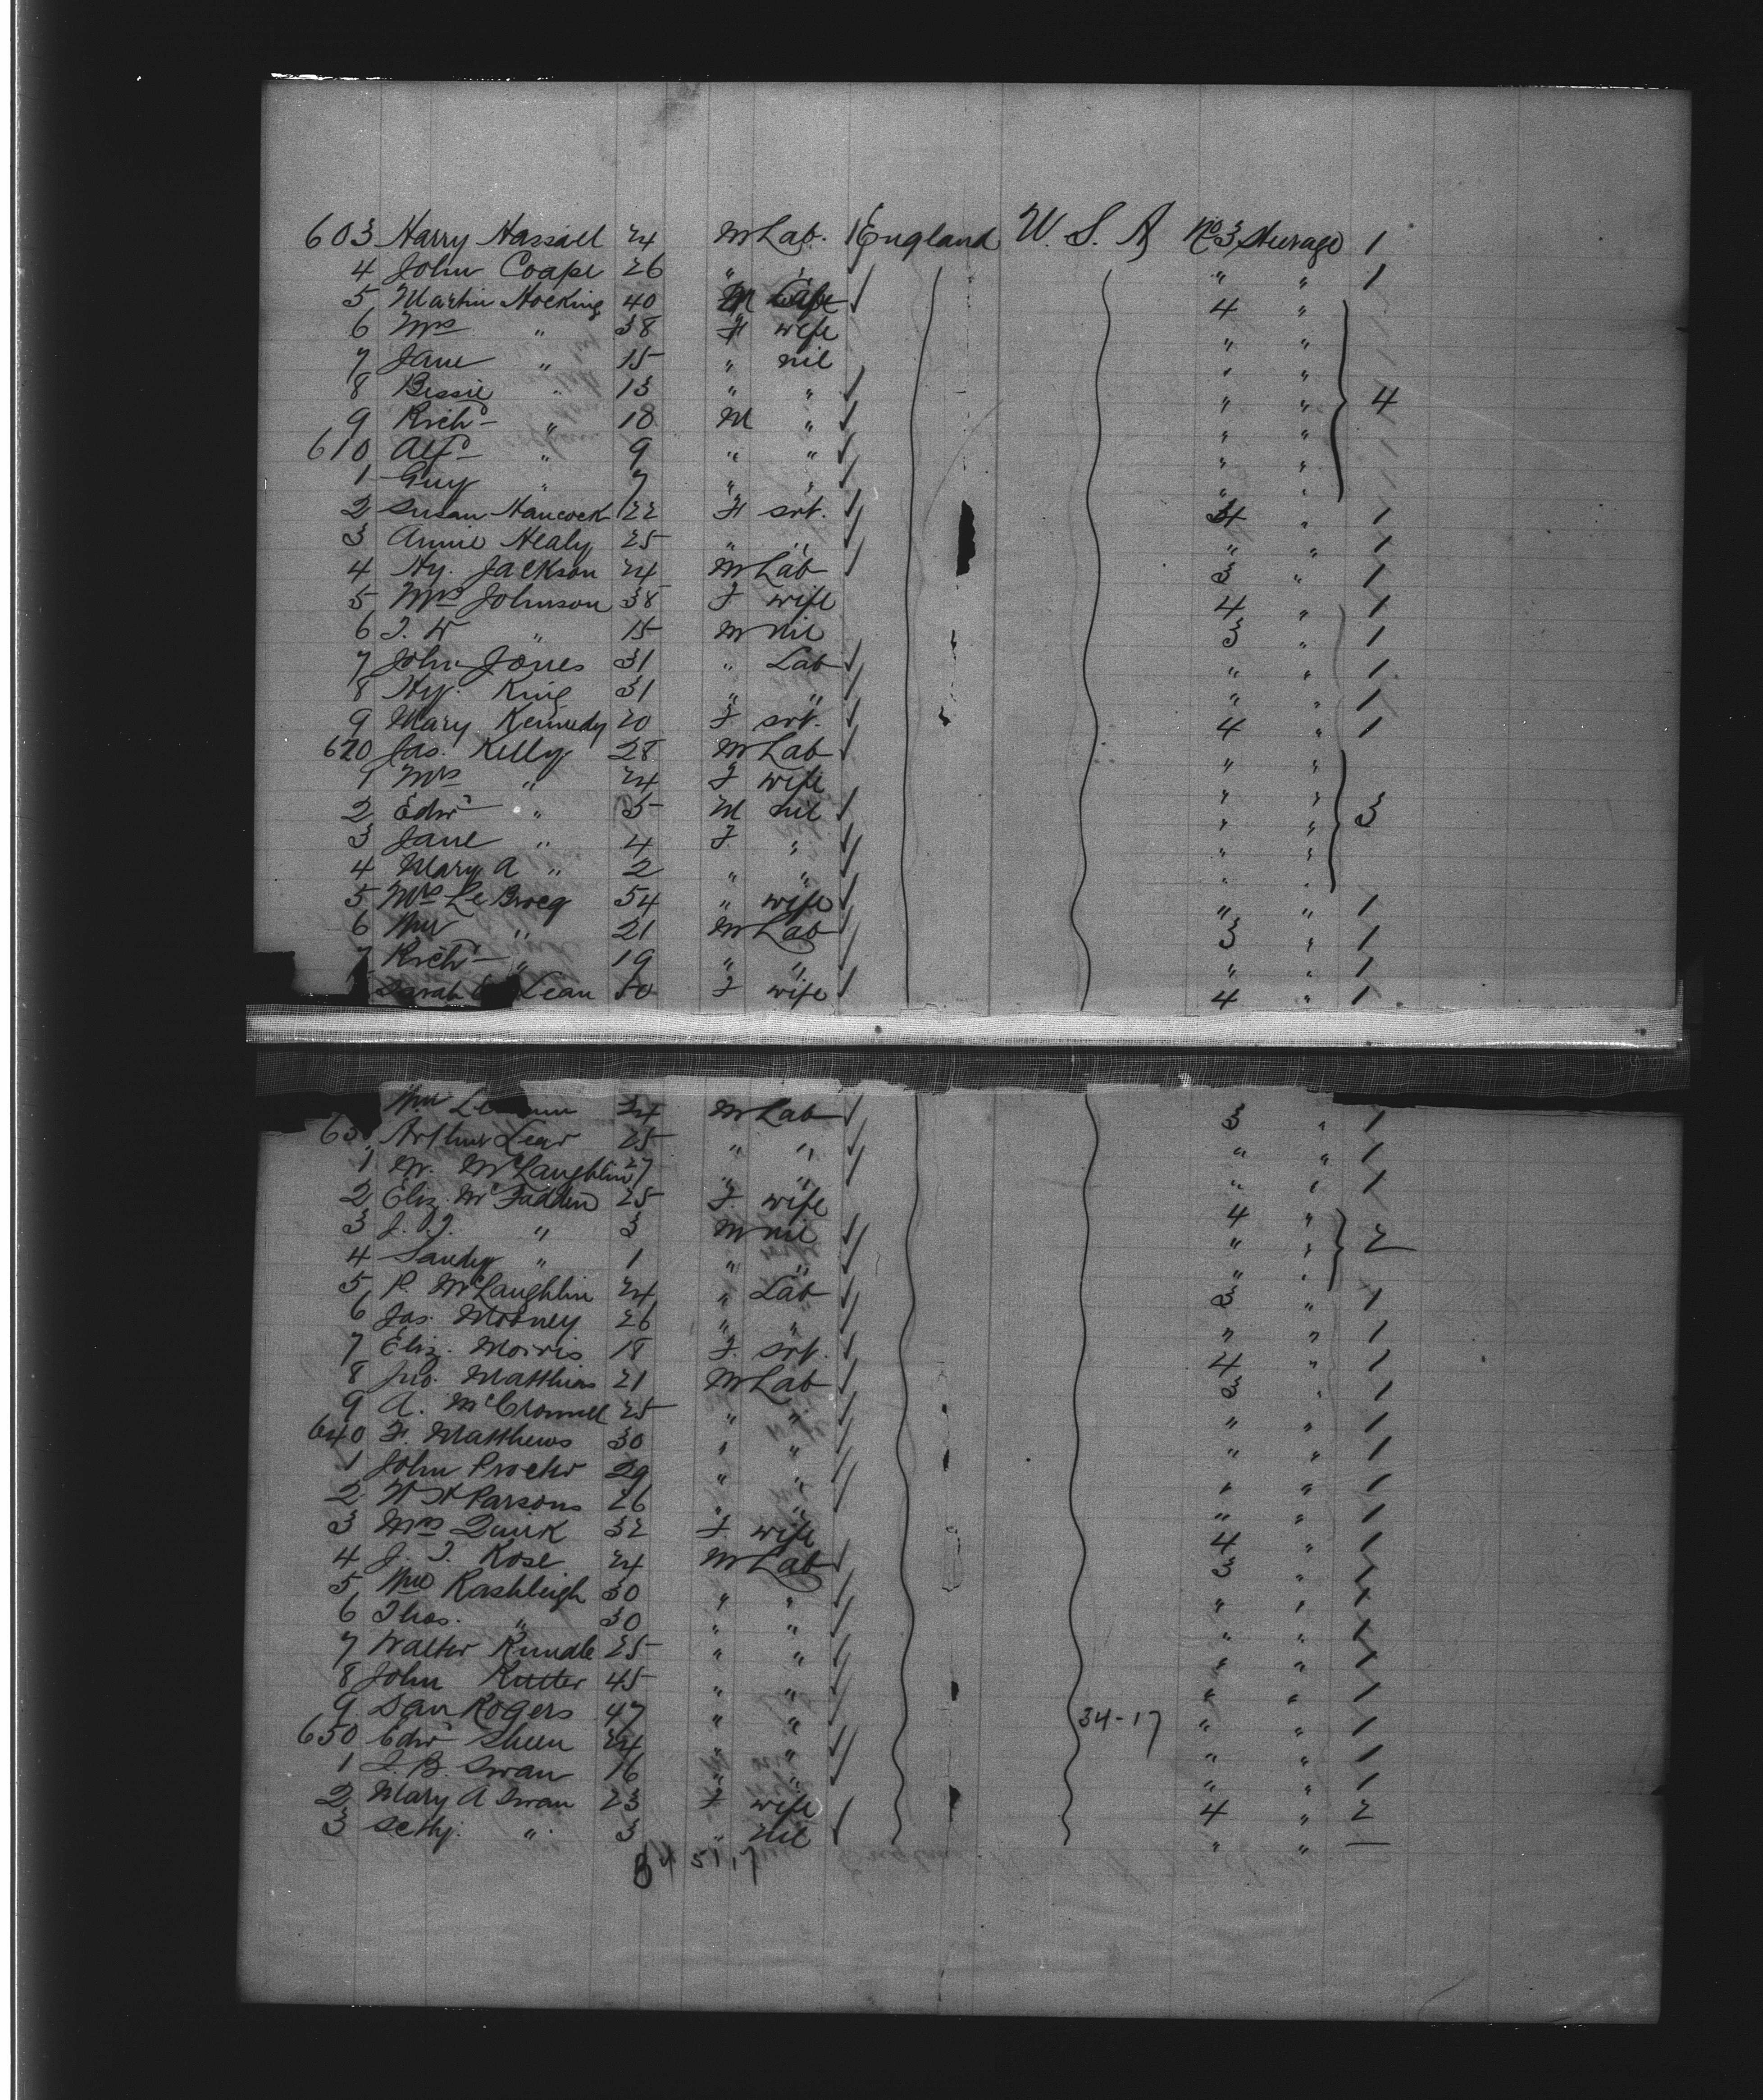 603 Harry Hassall 24 M Lab. England U. S. A No 3 Steerage 1
4 John Coape 26 " " " " 1
5 Martin Hocking 40 M 4 "
6 Mrs " 38 F wife " "
7 Jane " 15 " nil " "
8 Bessie " 13 " " " " 4
9 Richd " 10 M " " "
610 Alfd " 9 " " " "
1 Guy " 7 " " " "
2 Susan Hancock 22 F svt. 4 " 1
3 Annie Healy 25 " " " " 1
4 Hy. Jackson 24 M Lab 3 " 1
5 Mrs Johnson 38 F wife 4 " 1
6 " 15 M nil 3 " 1
7 John Jones 31 " Lab " " 1
8 Hy. King 31 " " " " 1
9 Mary Kennedy 20 F svt. 4 " 1
620 Jas. Kelly 28 M Lab " "
1 Mrs " 24 F wife " "
2 Edwd " 5 M nil " " 3
3 Jane " 4 F " " "
4 Mary A " 2 " " " "
5 Mrs Le Brocq 54 " wife " " 1
6 Wm " 21 M Lab 3 " 1
7 Richd " 19 " " " " 1
Sarah Lean F wife 4 " 1
Wm 24 M Lab 3 " 1
63 Arthur Lear 25 " " " " 1
1 W. McLaughlin 27 " " " " 1
2 Eliz. McFadden 25 F wife 4 "
3 J. J. " 3 M nil " " 2
4 Sandy " 1 " " " "
5 P. McLaughlin 24 " Lab 3 " 1
6 Jas. Mooney 26 " " " " 1
7 Eliz. Morris 18 F. svt. 4 " 1
8 Jno. Matthias 21 M Lab 3 " 1
9 A. McConnell 25 " " " " 1
640 F. Matthews 30 " " " " 1
1 John Procter 29 " " " " 1
2 W H Parsons 26 " " " " 1
3 Mrs Quirk 32 F. wife 4 " 1
4 J. T. Rose 24 M Lab 3 " 1
5 Wm Rashleigh 30 " " " " 1
6 Thos. " 30 " " " " 1
7 Walter Rundle 25 " " " " 1
8 John Rutter 45 " " " " 1
9 Dan Rogers 47 " " 34-17 " " 1
650 Edwd Sheen 24 " " " " 1
1 J. B. Swan 16 " " " " 1
2 Mary A Swan 23 F wife 4 " 2
3 " 3 " nil " " —
51, 17